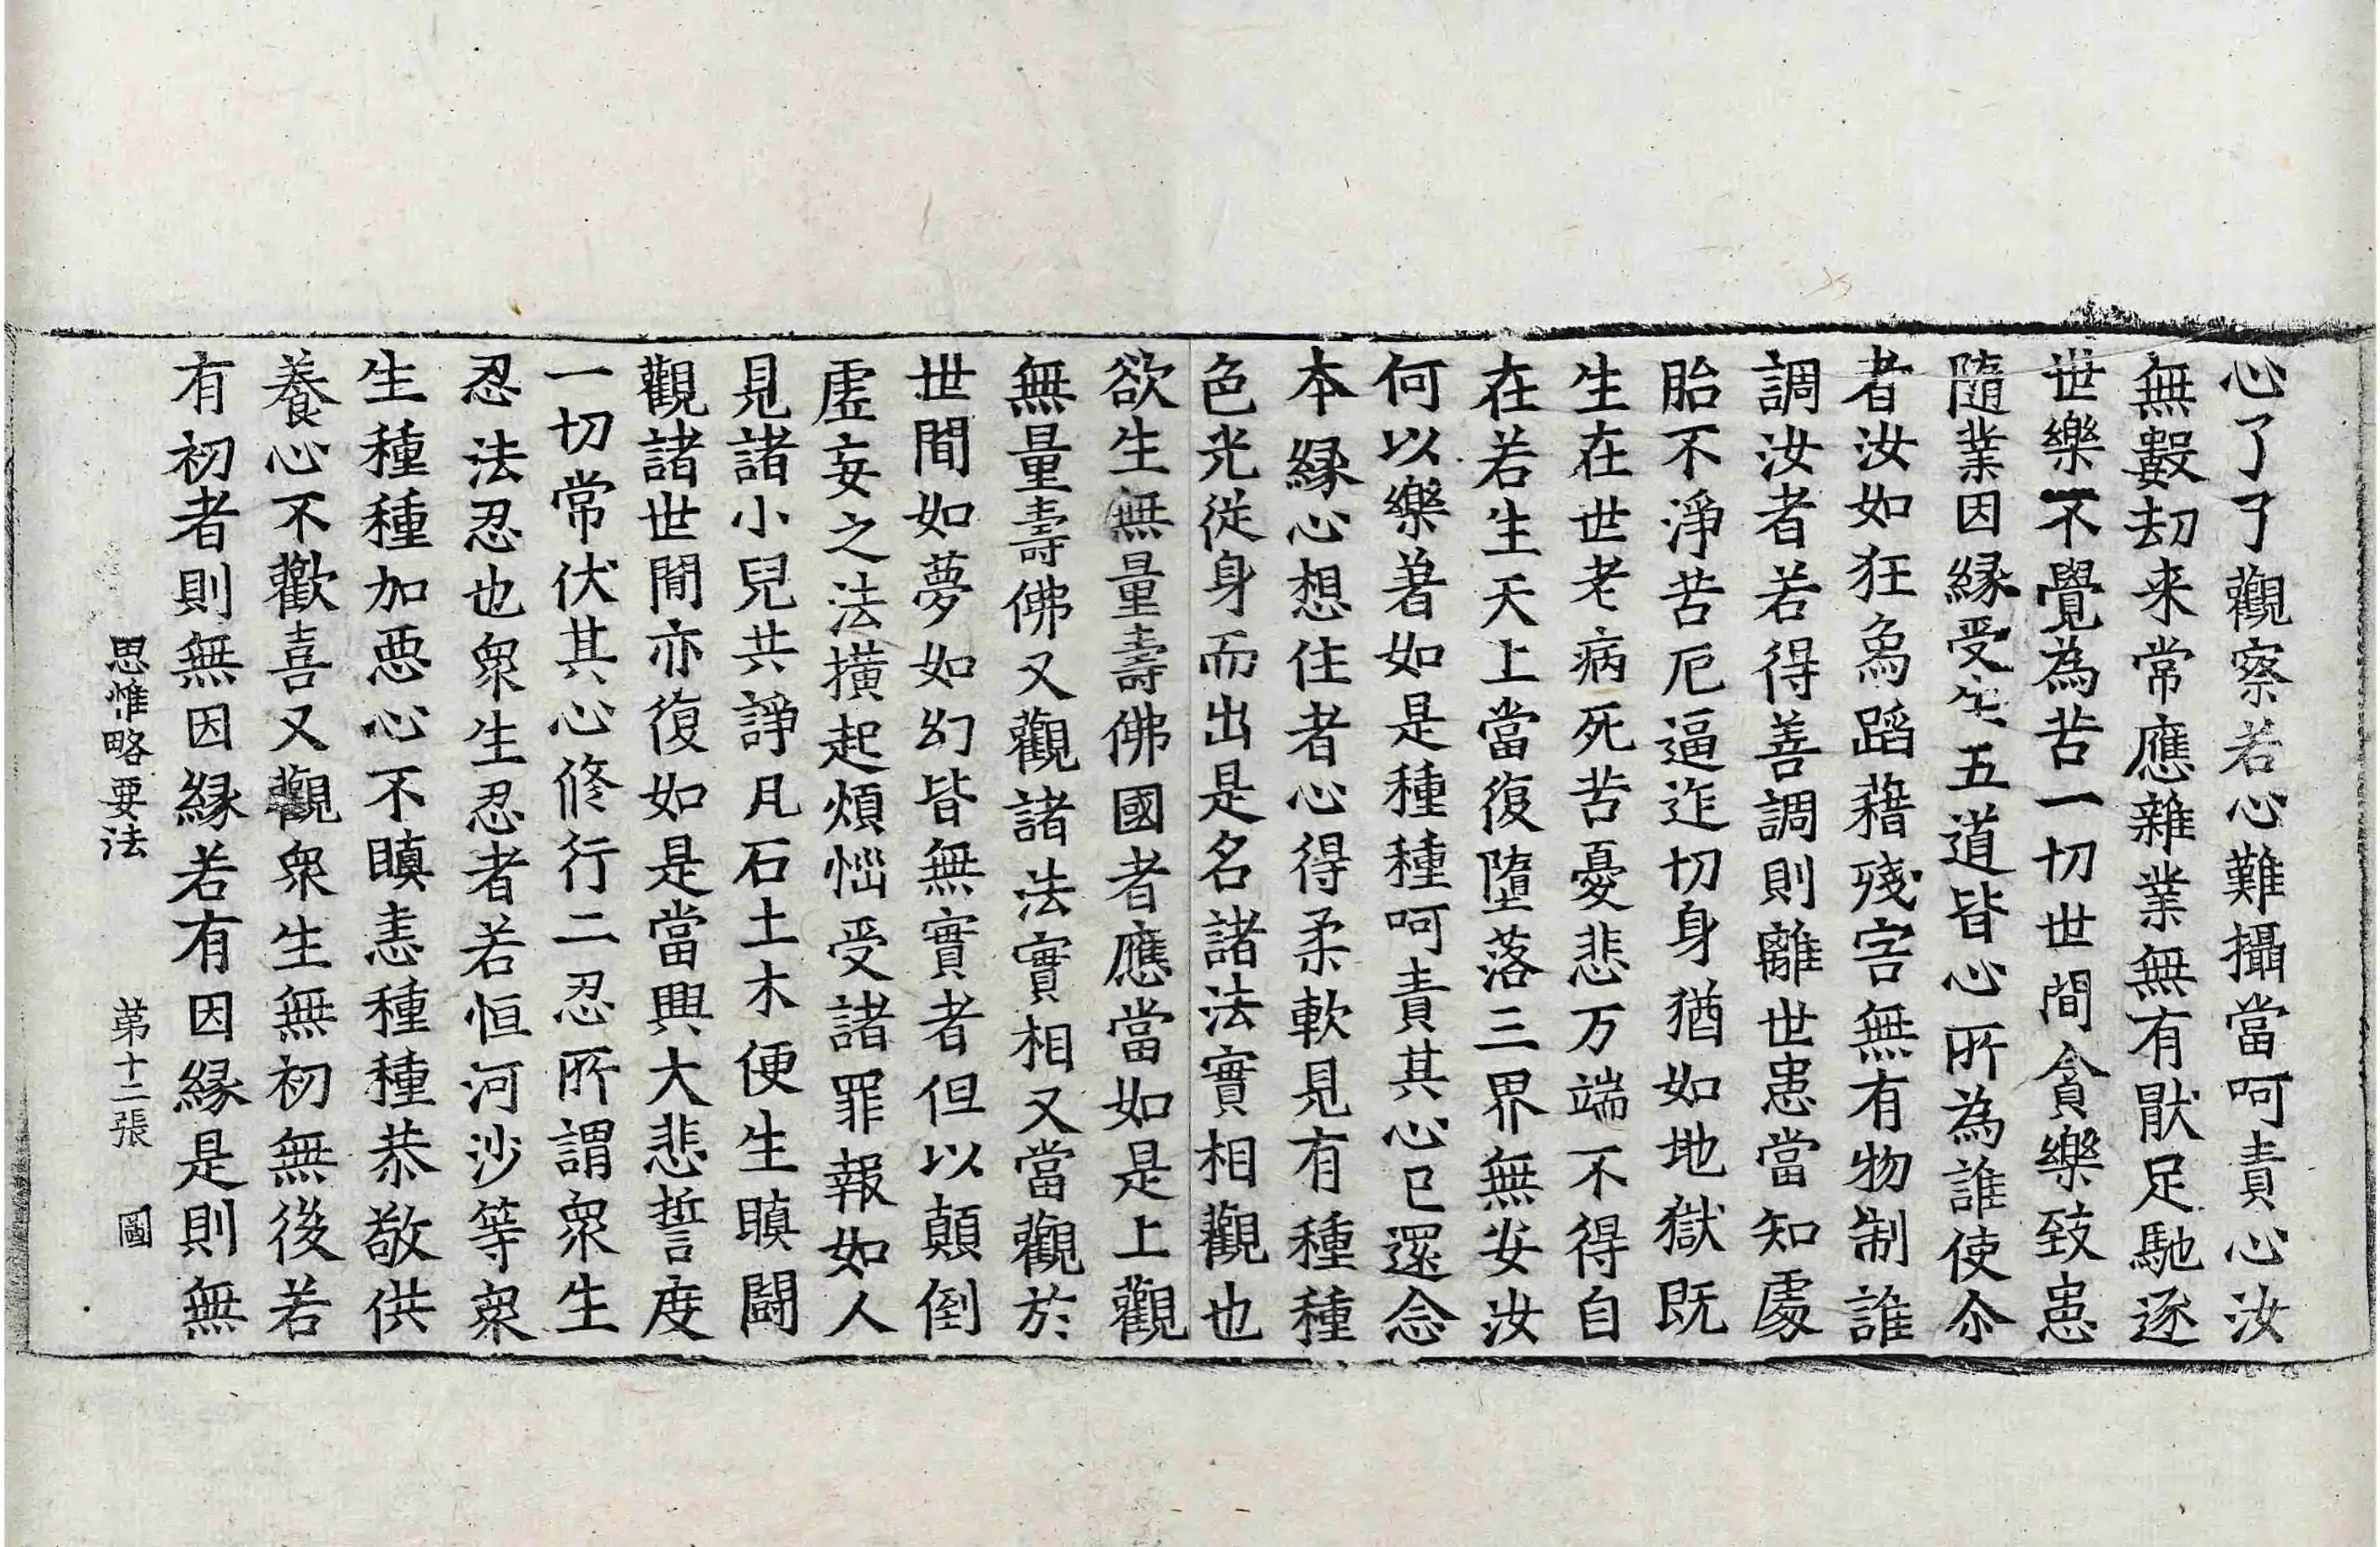 心了了觀察若心難攝當呵責心汝
無數劫来常應雜業無有猒足馳逐
世樂不覺為苦一切世間貪樂致患
隨業因縁受生五道皆心所為誰使尒
者汝如狂象蹈藉殘害無有物制誰
調汝者若得善調則離世患當知處
胎不淨苦厄逼迮切身猶如地獄既
生在世老病死苦憂悲万端不得自
在若生天上當復墮落三界無安汝
何以樂著如是種種呵責其心已還念
本縁心想住者心得柔軟見有種種
色光從身而出是名諸法實相觀也
欲生無量壽佛國者應當如是上觀
無量壽佛又觀諸法實相又當觀於
世間如夢如幻皆無實者但以顛倒
虛妄之法撗起煩惱受諸罪報如人
見諸小兒共諍凡石土木便生瞋鬪
觀諸世間亦復如是當興大悲誓度
一切常伏其心修行二忍所謂衆生
忍法忍也衆生忍者若恒河沙等衆
生種種加惡心不瞋恚種種恭敬供
養心不歡喜又觀衆生無初無後若
有初者則無因縁若有因縁是則無
思惟略要法 第十二張 圖